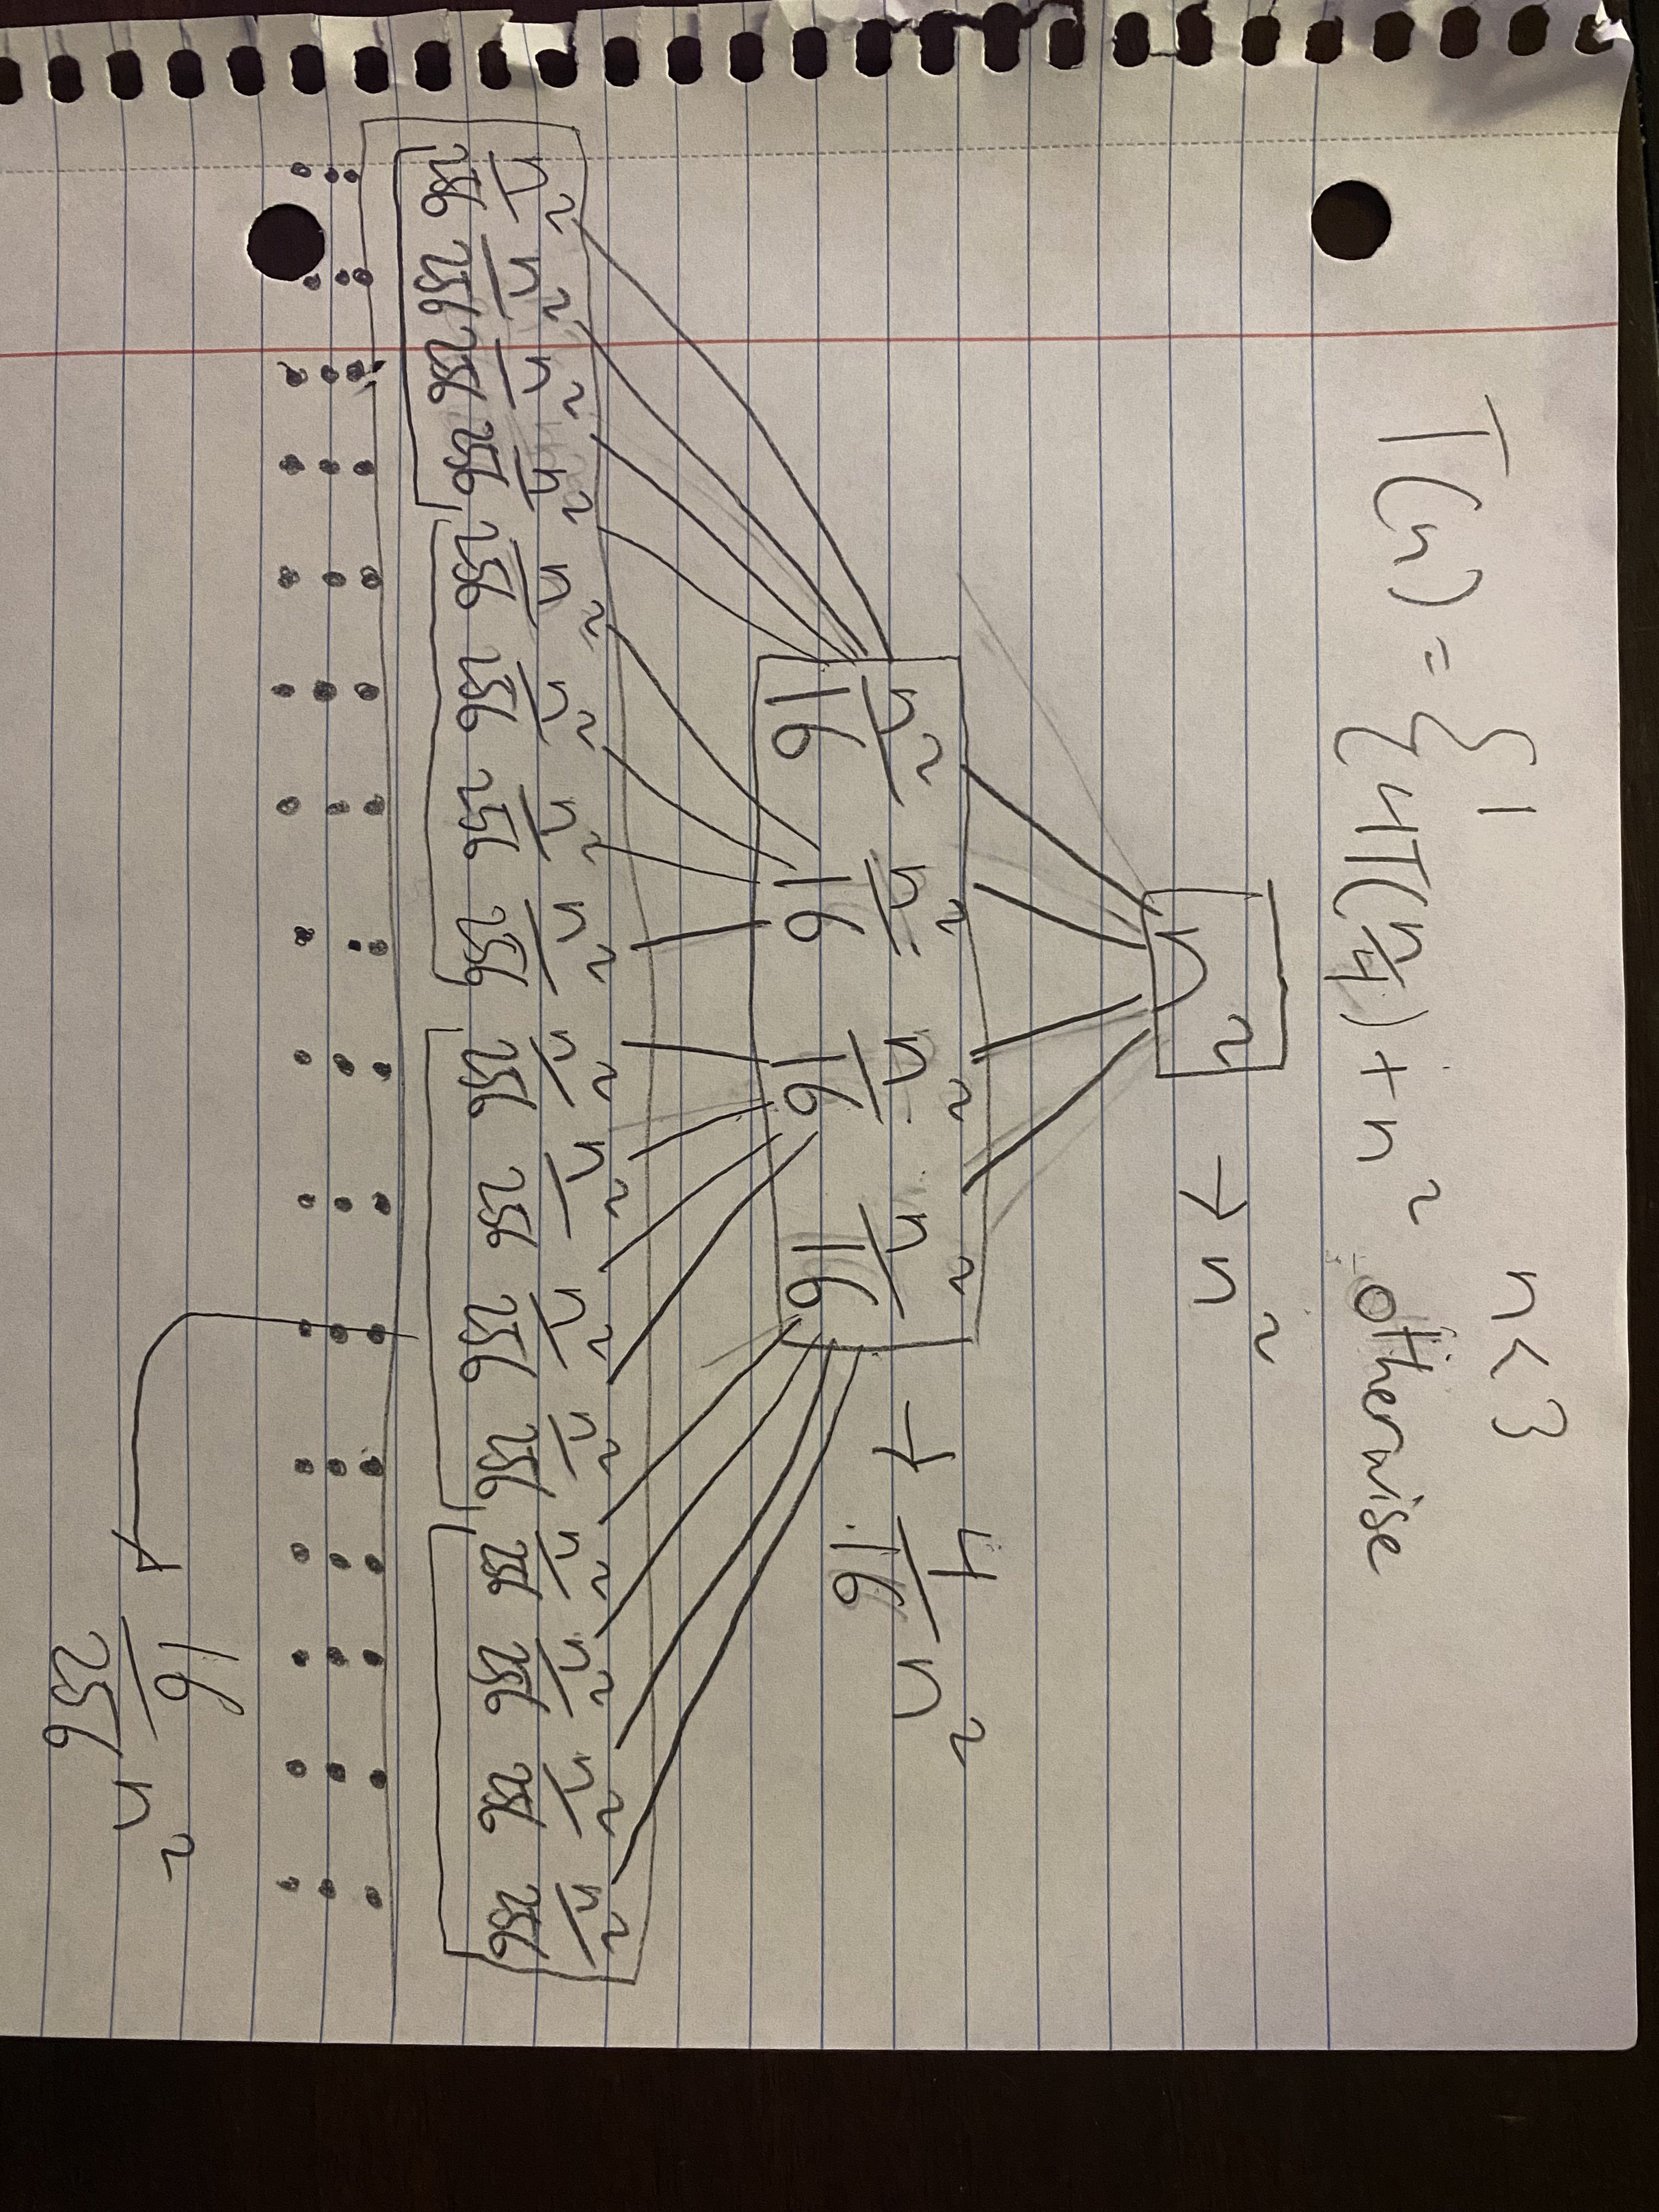 T(n) = { 1 n < 3
{ 4T(n/4) + n² otherwise
n² → n²
n²/16 n²/16 n²/16 n²/16 → 4/16 n²
n²/256 n²/256 n²/256 n²/256 n²/256 n²/256 n²/256 n²/256 n²/256 n²/256 n²/256 n²/256 n²/256 n²/256 n²/256 n²/256
16/256 n²